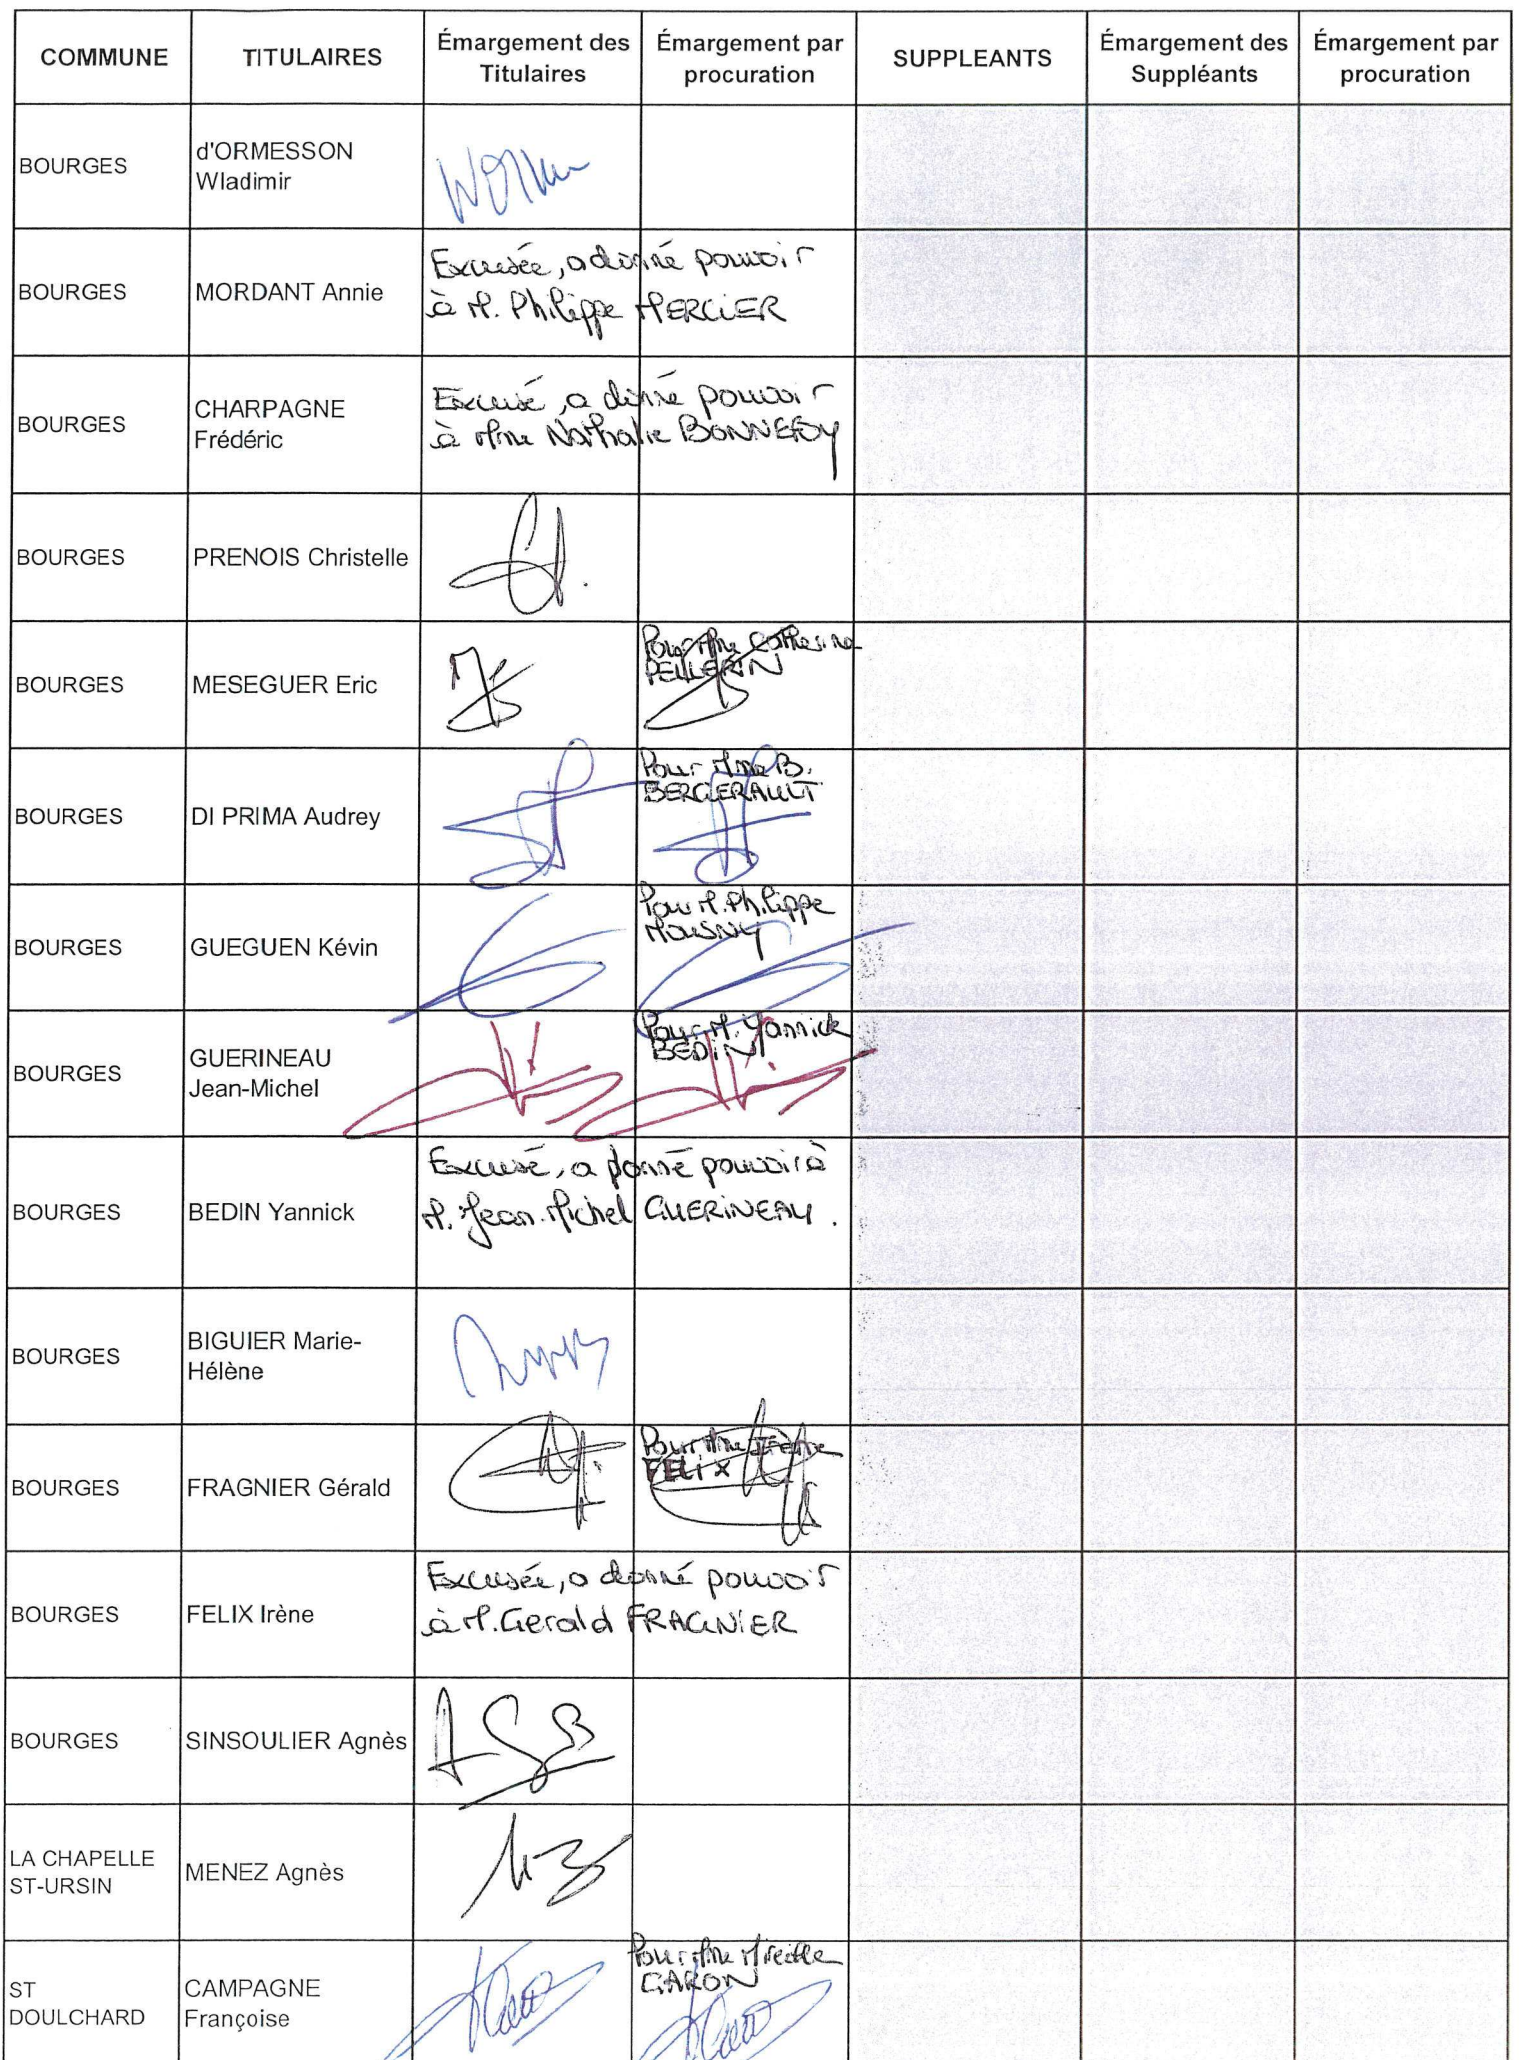 COMMUNE
TITULAIRES
Émargement des
Titulaires
Émargement par
procuration
SUPPLEANTS
Émargement des
Suppléants
Émargement par
procuration
BOURGES
d'ORMESSON
Wladimir
BOURGES
MORDANT Annie
Excusée, a donné pouvoir
à M. Philippe MERCIER
BOURGES
CHARPAGNE
Frédéric
Excusé, a donné pouvoir
à Mme Nathalie BONNEFOY
BOURGES
PRENOIS Christelle
BOURGES
MESEGUER Eric
Pour Mme Catherine
PELLERIN
BOURGES
DI PRIMA Audrey
Pour Mme B.
BERGERAULT
BOURGES
GUEGUEN Kévin
Pour M. Philippe
MOUSNY
BOURGES
GUERINEAU
Jean-Michel
Pour M. Yannick
BEDIN
BOURGES
BEDIN Yannick
Excusé, a donné pouvoir à
M. Jean-Michel GUERINEAU.
BOURGES
BIGUIER Marie-
Hélène
BOURGES
FRAGNIER Gérald
Pour Mme Irène
FELIX
BOURGES
FELIX Irène
Excusée, a donné pouvoir
à M. Gerald FRAGNIER
BOURGES
SINSOULIER Agnès
BOURGES
LA CHAPELLE
ST-URSIN
MENEZ Agnès
ST
DOULCHARD
CAMPAGNE
Françoise
Pour Mme Mireille
GARON